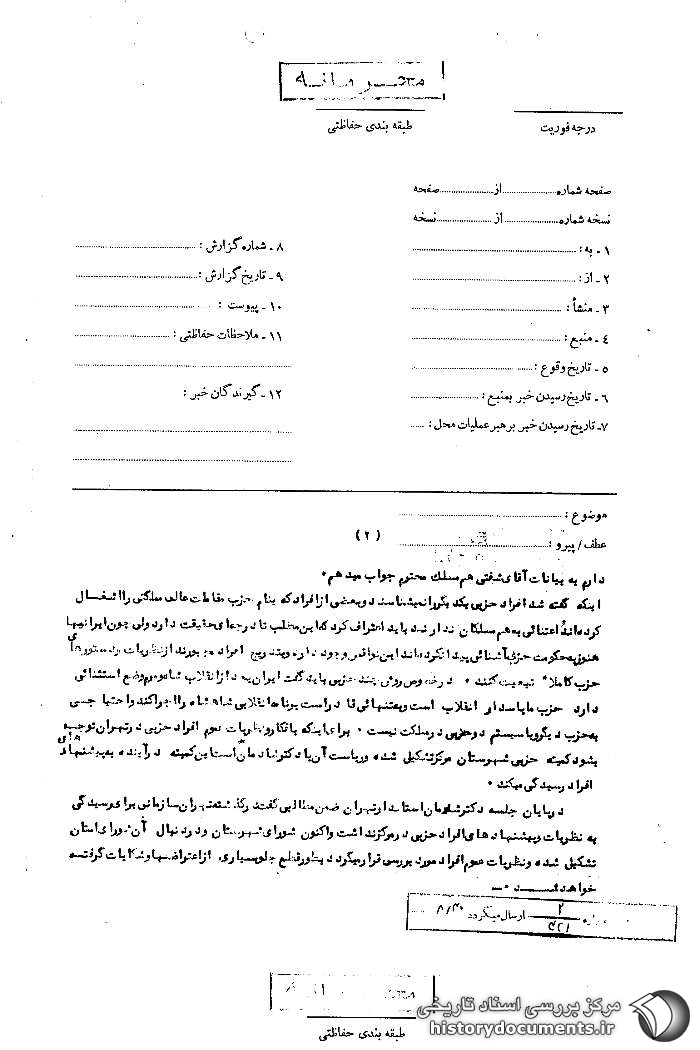 محرمانه
طبقه بندی حفاظتی
درجه فوریت
صفحه شماره ........ از ........ صفحه
نسخه شماره ........ از ........ نسخه
۱ - به :
۲ - از :
۳ - منشأ :
۴ - منبع :
۵ - تاریخ وقوع :
۶ - تاریخ رسیدن خبر بمنبع :
۷ - تاریخ رسیدن خبر برهبر عملیات محل :
۸ - شماره گزارش :
۹ - تاریخ گزارش :
۱۰ - پیوست :
۱۱ - ملاحظات حفاظتی :
۱۲ - گیرندگان خبر :
موضوع :
عطف / پیرو :
(۲)
دارم به بیانات آقای شفتی هم مسلك محترم جواب میدهم .
اینکه گفته شد افراد حزبی یکدیگر را نمیشناسند و بعضی از افراد که بنام حزب مقامات عالی مملکتی را اشغال
کرده اند اعتنائی به هم مسلکان ندارند باید اعتراف کرد که این مطلب تا درجه ای حقیقت دارد ولی چون ایرانیها
هنوز به حکومت حزبی آشنائی پیدا نکرده اند این نواقص وجود دارد و بتدریج افراد مجبورند از نظریات و دستورهای
حزب کاملا تبعیت کنند . در خصوص روش چند حزبی باید گفت ایران بعد از انقلاب شاه و مردم وضع استثنائی
دارد حزب ما پاسدار انقلاب است و بتنهائی قادر است برنامه انقلابی شاهنشاه را اجرا کند و احتیاجی
به حزب دیگر و یا سیستم دو حزبی در مملکت نیست . برای اینکه بافکار و نظریات عموم افراد حزبی در تهران توجه
بشود کمیته حزبی شهرستان مرکز تشکیل شده و ریاست آن با دکتر شادمان است این کمیته در آینده به پیشنهاد های
افراد رسیدگی میکند .
در پایان جلسه دکتر شادمان استاندار تهران ضمن مطالبی گفت در گذشته تهران سازمانی برای رسیدگی
به نظریات و پیشنهادهای افراد حزبی در مرکز نداشت و اکنون شورای شهرستان و در دنبال آن شورای استان
تشکیل شده و نظریات عموم افراد مورد بررسی قرار میگیرد و بطور قطع جلو بسیاری از اعتراضها و شکایات گرفته
خواهد شد .
ارسال میگردد
طبقه بندی حفاظتی
مرکز بررسی اسناد تاریخی
historydocuments.ir